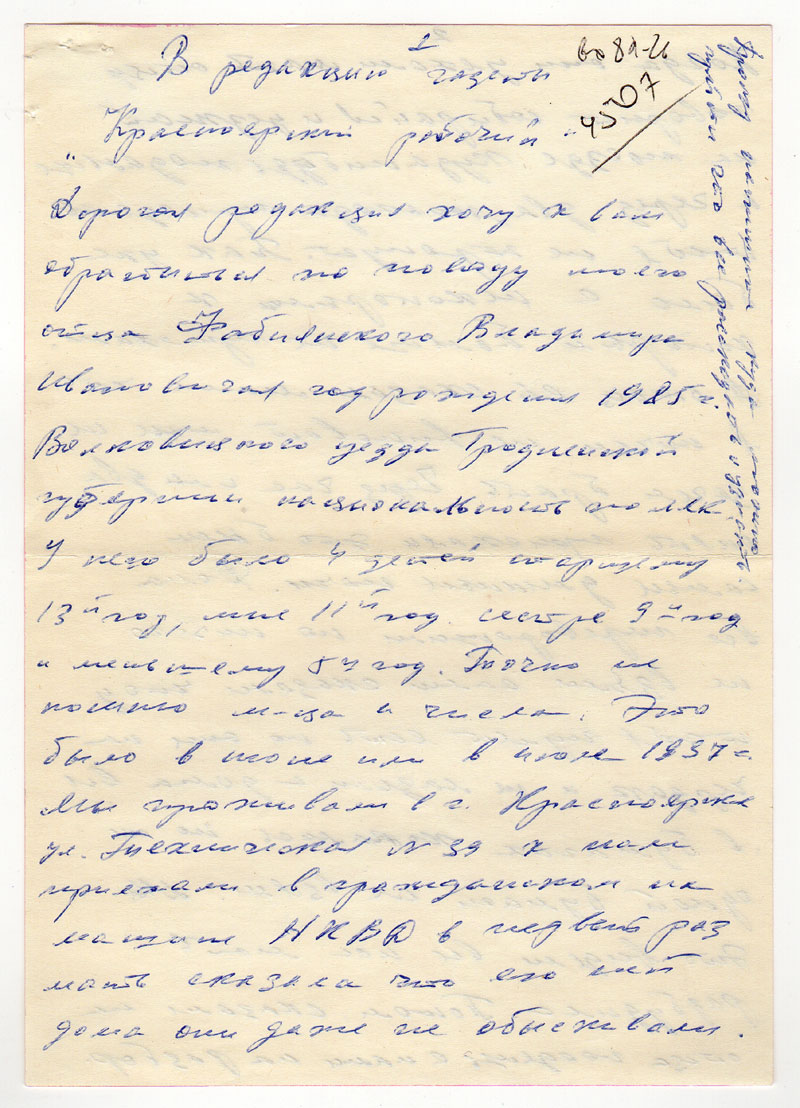 1
во 89-26
4507
В редакцию газеты
"Красноярский рабочий"
Дорогая редакция хочу к вам
обратится по поводу моего
отца Фабиянского Владимира
Ивановичая год рождения 1985 г.
Волковишского уезда Гродненской
губернии национальность поляк
У него было 4 детей старшему
13й год, мне 11й год сестре 9й год
и меньшему 5й год. Точно не
помню м-ца и числа. Это
было в июне или в июле 1937 г.
Мы проживали в г. Красноярске
ул. Техническая № 39 к нам
приехали в гражданском на
машине НКВД в первый раз
мать сказала что его нет
дома они даже не обыскивали.
Прошу
что вы